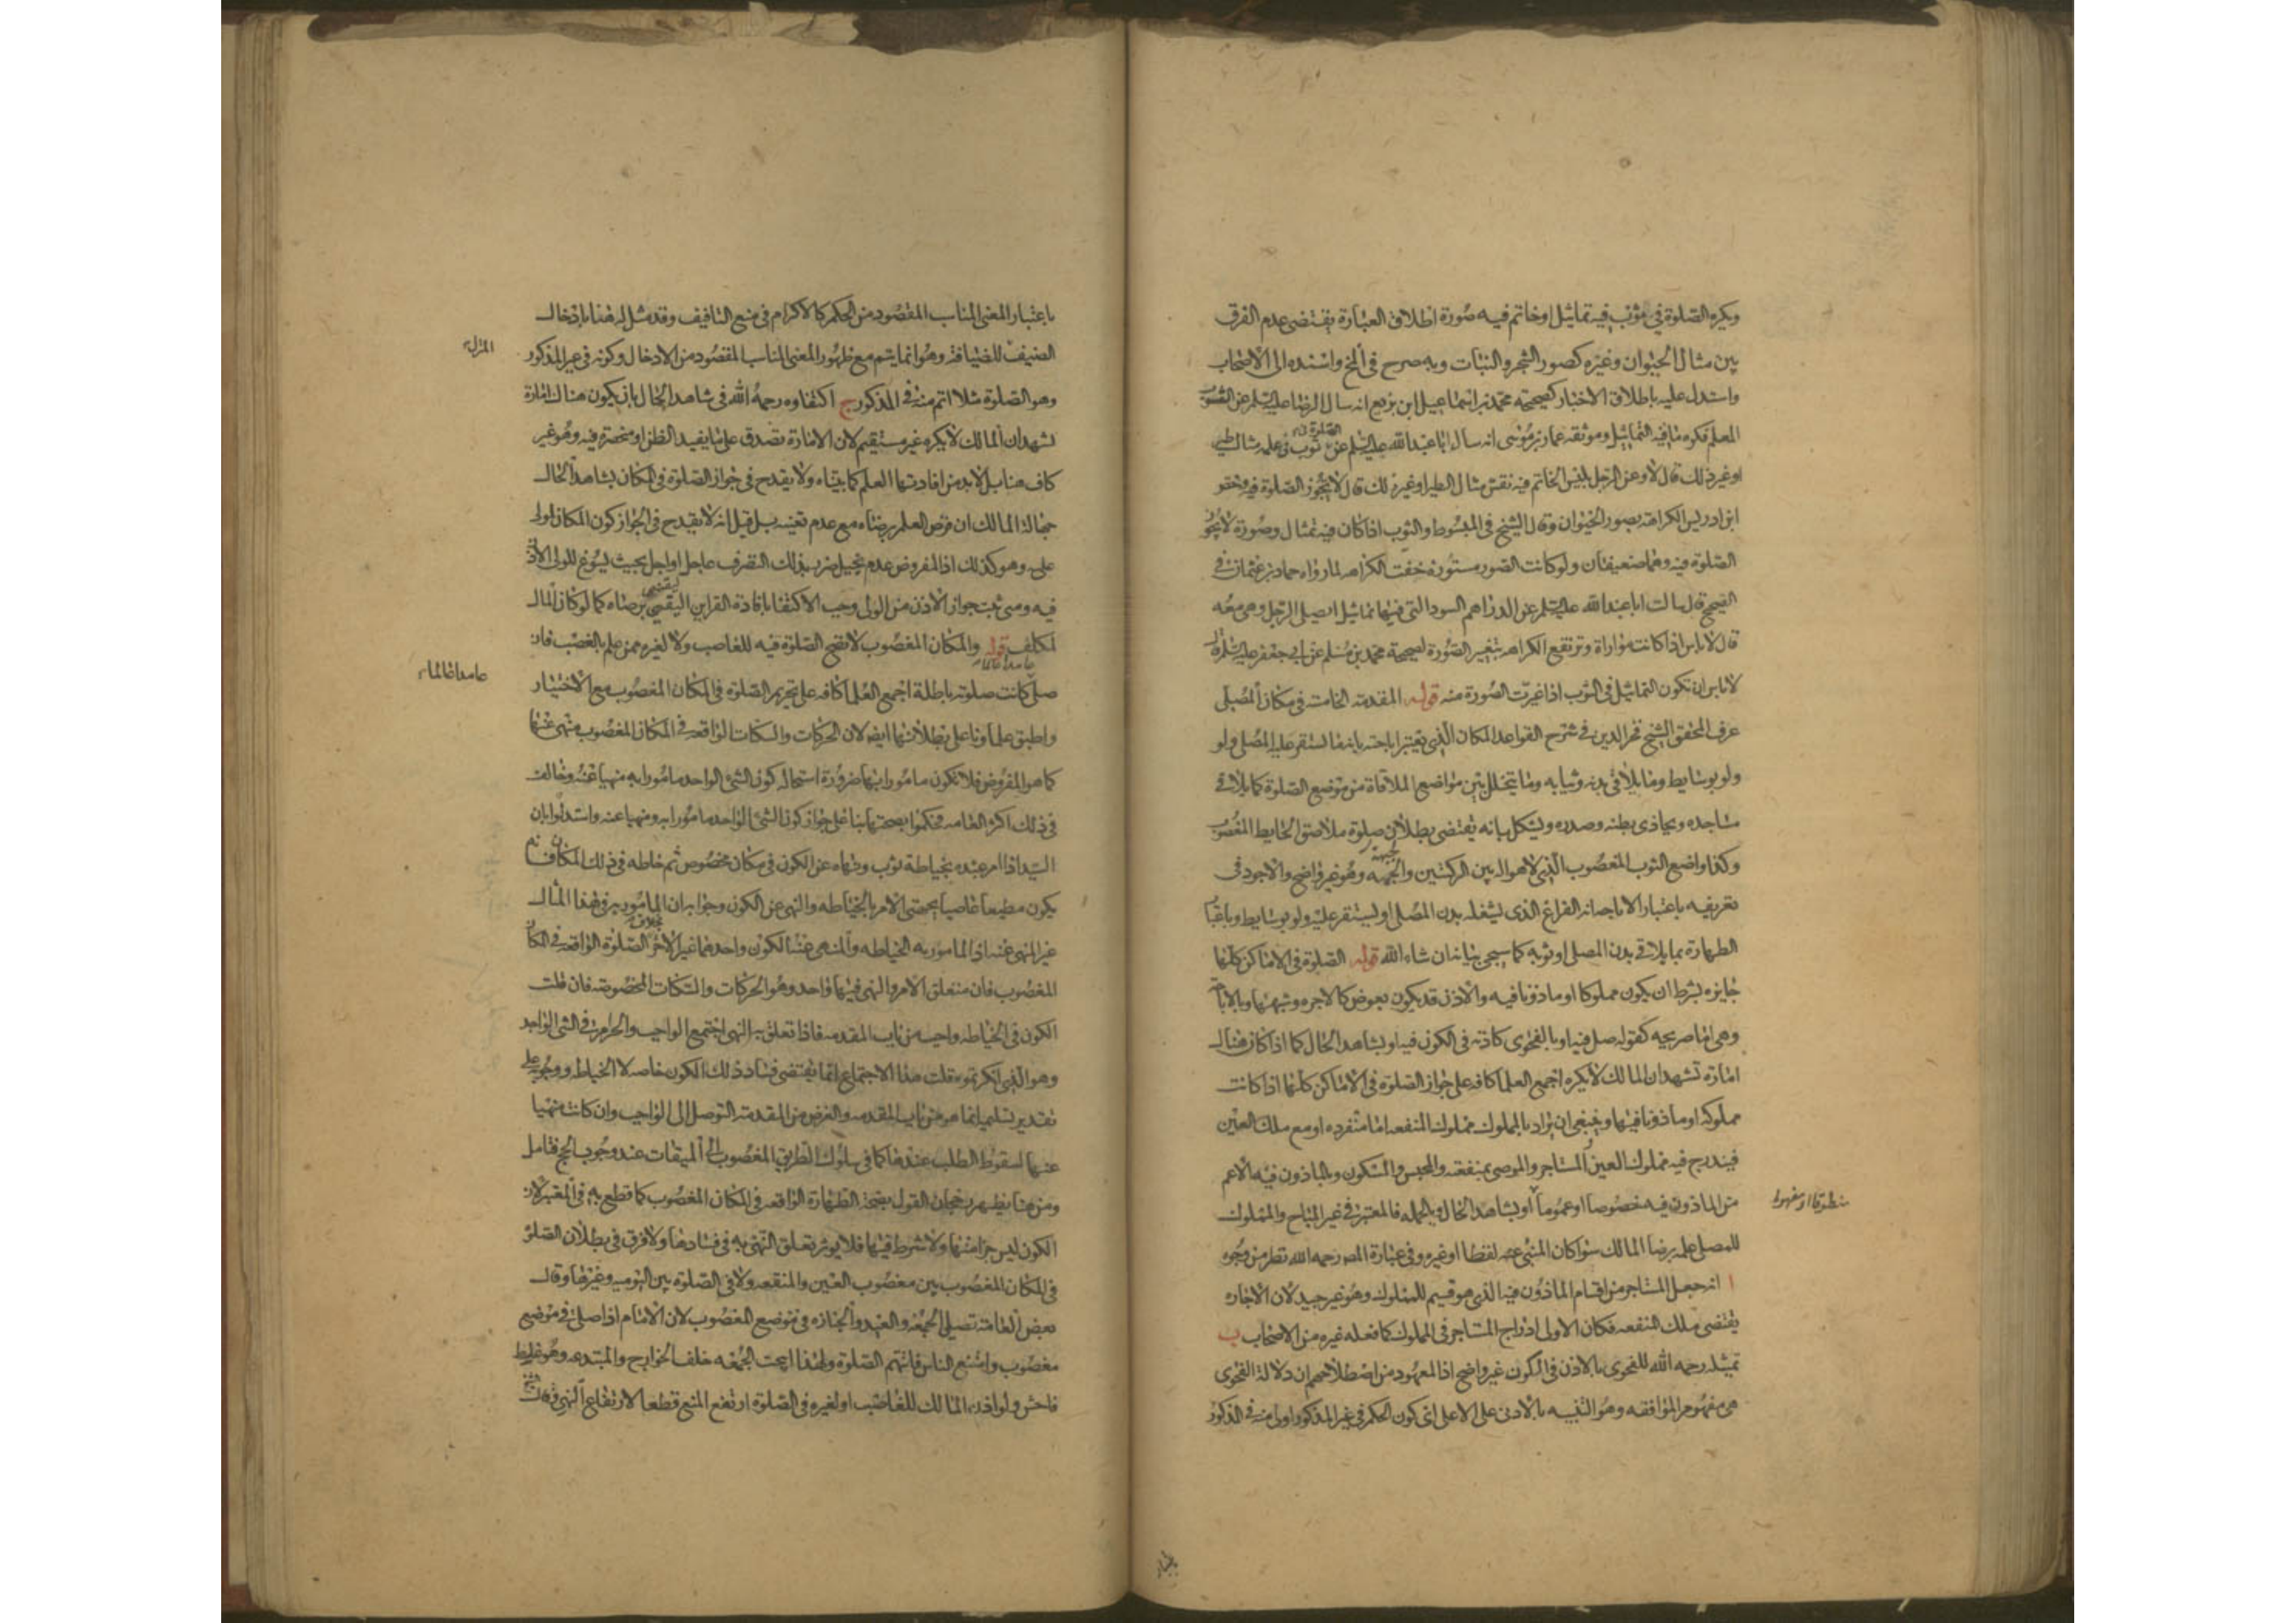 ويكره الصلوة في ثوب فيه تماثيل او خاتم فيه صورة اطلاق العبارة يقتضى عدم الفرق
بين مثال الحيوان وغيره كصور الشجر والنبات وبه صرح في الخ واسنده الى الاصحاب
واستدل عليه باطلاق الاخبار كصحيحة محمد بن اسماعيل ابن بزيع انه سال الرضا عليه السلم عن الثوب
المعلم فكره ما فيه التماثيل وموثقه عمار بن موسى انه سال ابا عبد الله عليه السلم عن الصلوة في ثوب في علمه مثال طير
او غير ذلك قال لا وعن الرجل يلبس الخاتم فيه نقش مثال الطير او غير ذلك قال لا يجوز الصلوة فيه وخص
ابن ادريس الكراهة بصور الحيوان وقال الشيخ في المبسوط والثوب اذا كان فيه تمثال وصورة لا يجوز
الصلوة فيه وهما ضعيفان ولو كانت الصور مستورة خفت الكراهه لما رواه حماد بن عثمان في
الصحيح قال سالت ابا عبد الله عليه السلم عن الدراهم السود التي فيها تماثيل ايصلى الرجل وهي معه
قال لا باس اذا كانت مواراة وترتفع الكراهه بتغيير الصورة لصحيحة محمد بن مسلم عن ابي جعفر عليه السلم قال
لا باس ان تكون التماثيل في الثوب اذا غيرت الصورة منه قوله المقدمة الخامسة في مكان المصلى
عرف المحقق الشيخ فخر الدين في شرح القواعد المكان الذي يعتبر اباحته بانه ما يستقر عليه المصلى ولو
ولو بوسايط وما يلاقى بدنه وثيابه وما يتخلل بين مواضع الملاقاة من موضع الصلوة كما يلاقى
مساجده ويحاذى بطنه وصدره ويشكل بانه يقتضى بطلان صلوة ملاصق الحايط المغصوب
وكذا واضع الثوب المغصوب الذي لا هوا له بين الركبتين والجبهه وهو غير واضح والاجود في
تعريفه باعتبار الاباحه انه الفراغ الذى يشغله بدن المصلى او يستقر عليه ولو بوسايط وباعتبار
الطهارة بما يلاقى بدن المصلى او ثوبه كما سيجى بيانه ان شاء الله قوله الصلوة في الاماكن كلها
جايزه بشرط ان يكون مملوكا او ماذونا فيه والاذن قد يكون بعوض كالاجره وشبهها وبالاباحة
وهي اما صريحه كقوله صل فيه او بالفحوى كاذنه في الكون فيه او بشاهد الحال كما اذا كان هناك
امارة تشهد ان المالك لا يكره اجمع العلما كافه على جواز الصلوة في الاماكن كلها اذا كانت
مملوكه او ماذونا فيها وينبغى ان يراد بالمملوك مملوك المنفعه اما منفرده او مع ملك العين
فيندرج فيه مملوك العين المستاجر والموصى بمنفعته والمحبس والمسكون وبالماذون فيه الاعم
من الماذون فيه خصوصا او عموما او بشاهد الحال وبالجمله فالمعتبر في غير المباح والمملوك
منطوقا او مفهوما
للمصلى علمه برضا المالك سواء كان المنبى عنه لفظا او غيره وفي عبارة المص رحمه الله نظر من وجوه
ا انه جعل المستاجر من اقسام الماذون فيه الذي هو قسيم للمملوك وهو غير جيد لان الاجاره
يقتضى ملك المنفعه فكان الاولى ادراج المستاجر في المملوك كما فعله غيره من الاصحاب ب
تمثيله رحمه الله للفحوى بالاذن في الكون غير واضح اذ المعهود من اصطلاحهم ان دلالة الفحوى
هي مفهوم الموافقه وهو التنبيه بالادنى على الاعلى اى كون الحكم في غير المذكور اولى منه في المذكور
باعتبار
باعتبار المعنى المناسب المقصود من الحكم كالاكرام في منع التافيف وقد مثل له هنا بادخال
الضيف للضيافة وهو انما يتم مع ظهور المعنى المناسب المقصود من الادخال وكونه في غير المذكور
المنزل
وهو الصلوة مثلا اتم منه في المذكور ج اكتفاوه رحمه الله في شاهد الحال بان يكون هناك امارة
تشهد ان المالك لا يكره غير مستقيم لان الامارة تصدق على ما يفيد الظن او منحصرة فيه وهو غير
كاف هنا بل لابد من افادتها العلم كما بيناه ولا يقدح في جواز الصلوة في المكان بشاهد الحال
جهالة المالك ان فرض العلم برضاه مع عدم تعينه بل قيل انه لا يقدح في الجواز كون المكان لمولى
عليه وهو كذلك اذ المفروض عدم تخيل ضرر بذلك التصرف عاجل او اجل بحيث يسوغ للولى الاذن
فيه ومتى ثبت جواز الاذن من الولى وجب الاكتفا بافادة القراين اليقين برضاه كما لو كان المال
لمكلف قوله والمكان المغصوب لا تصح الصلوة فيه للغاصب ولا لغيره ممن علم بالغصب فان
صلى عامدا عالما كانت صلوته باطلة اجمع العلما كافه على تحريم الصلوة في المكان المغصوب مع الاختيار
عامدا عالما
واطبق علماونا على بطلانها ايض لان الحركات والسكنات الواقعه في المكان المغصوب منهى عنها
كما هو المفروض فلا تكون مامورا بها ضرورة استحالة كون الشئ الواحد مامورا به منهيا عنه وخالف
في ذلك اكثر العامه فحكموا بصحتها بنا على جواز كون الشئ الواحد مامورا به ومنهيا عنه واستدلوا بان
السيد اذا امر عبده بخياطة ثوب ونهاه عن الكون في مكان مخصوص ثم خاطه في ذلك المكان فانه
يكون مطيعا عاصيا بجهتى الامر بالخياطه والنهى عن الكون وجوابه ان المامور به في هذا المثال
غير المنهى عنه اذ المامور به الخياطه والمنهى عنه الكون واحدهما غير الاخر بخلاف الصلوة الواقعه في المكان
المغصوب فان متعلق الامر والنهى فيها واحد وهو الحركات والسكنات المخصوصه فان قلت
الكون في الخياطه واجب من باب المقدمه فاذا تعلق به النهى اجتمع الواجب والحرام في الشئ الواحد
وهو الذي انكرتموه قلت هذا الاجتماع انما يقتضى فساد ذلك الكون خاصه لا الخياطه ووجوبه على
تقدير تسليمه انما هو من باب المقدمه والغرض من المقدمه التوصل الى الواجب وان كانت منهيا
عنها لسقوط الطلب عندها كما في سلوك الطريق المغصوب الى الميقات عند وجوب الحج فتامل
ومن هنا يظهر رجحان القول بصحة الطهارة الواقعه في المكان المغصوب كما قطع به في المعتبر لان
الكون ليس جزا منها ولا شرط فيها فلا يوثر تعلق النهى به في فسادها ولا فرق في بطلان الصلوة
في المكان المغصوب بين مغصوب العين والمنفعه ولا في الصلوة بين اليوميه وغيرها وقال
بعض العامه تصلى الجمعه والعيد والجنازه في موضع المغصوب لان الامام اذا صلى في موضع
مغصوب وامتنع الناس فاتتهم الصلوة ولهذا ابيحت الجمعه خلف الخوارج والمبتدعه وهو غلط
فاحش ولو اذن المالك للغاصب او لغيره في الصلوة ارتفع المنع قطعا لارتفاع النهى وقال الشيخ